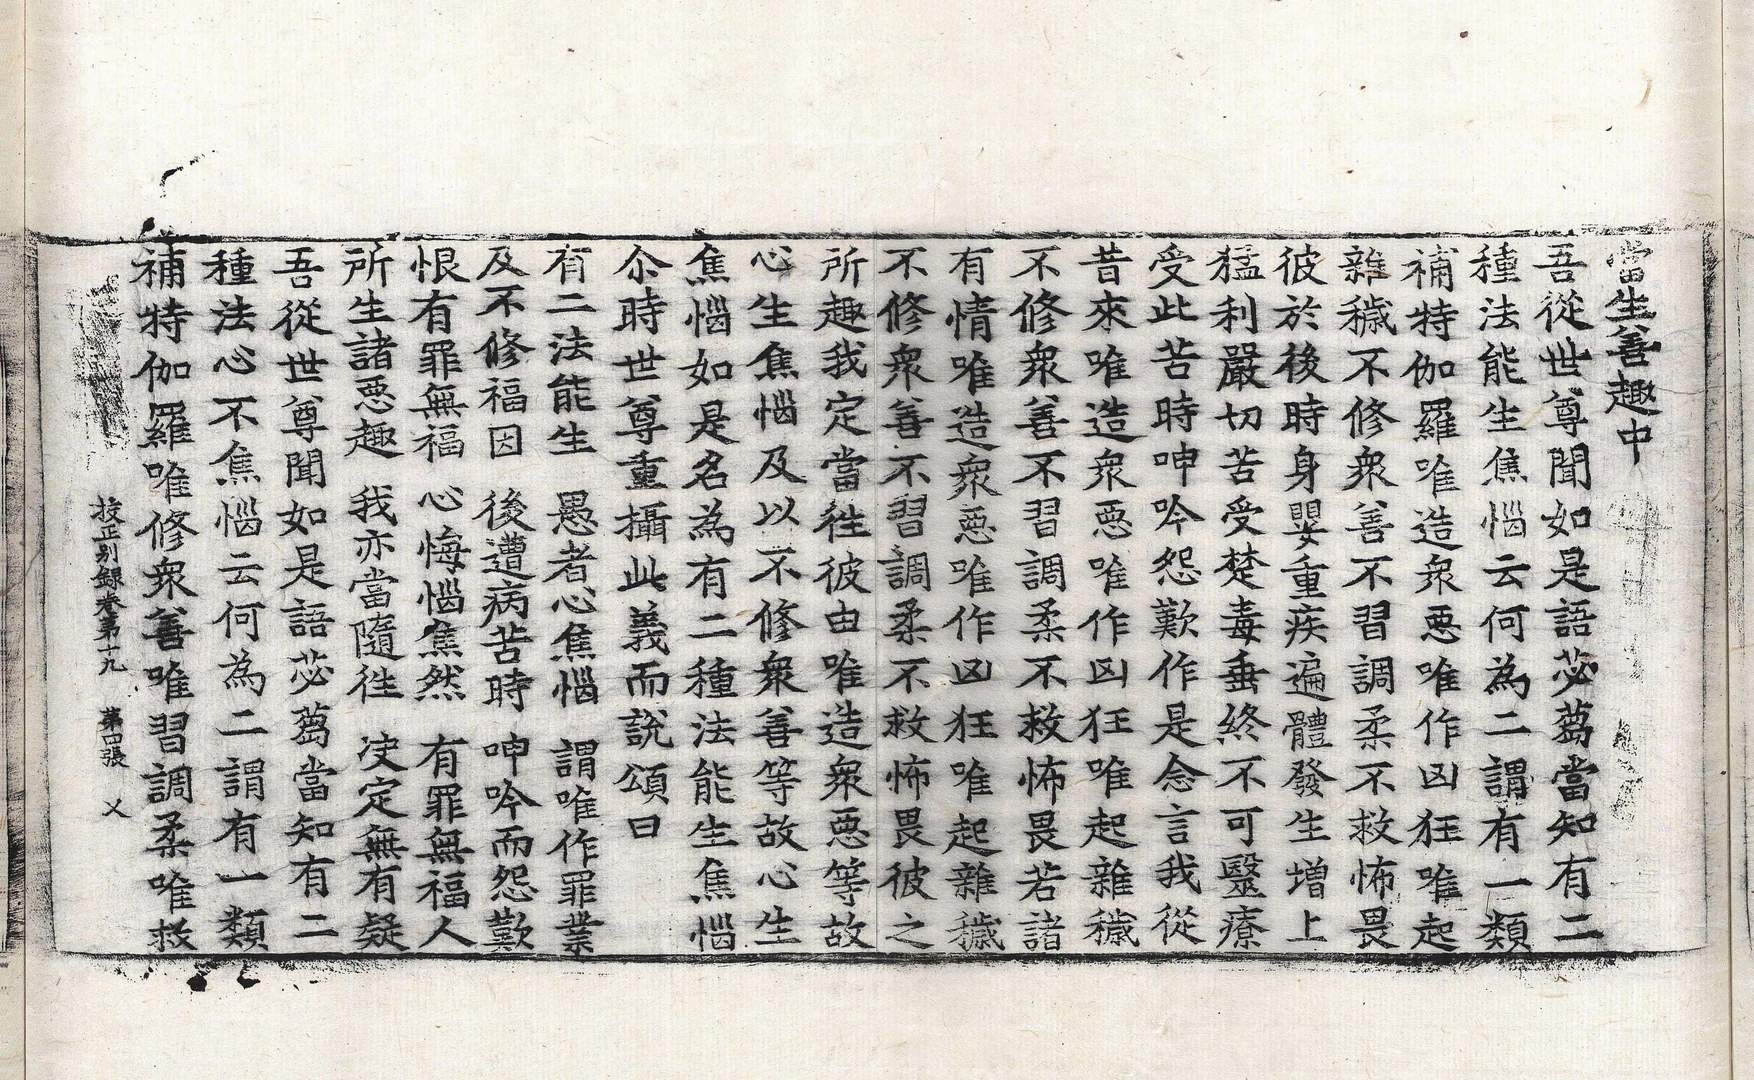 當生善趣中
吾從世尊聞如是語苾蒭當知有二
種法能生焦惱云何為二謂有一類
補特伽羅唯造衆惡唯作凶狂唯起
雜穢不修衆善不習調柔不救怖畏
彼於後時身嬰重疾遍體發生增上
猛利嚴切苦受楚毒垂終不可毉療
受此苦時呻吟怨歎作是念言我從
昔來唯造衆惡唯作凶狂唯起雜穢
不修衆善不習調柔不救怖畏若諸
有情唯造衆惡唯作凶狂唯起雜穢
不修衆善不習調柔不救怖畏彼之
所趣我定當往彼由唯造衆惡等故
心生焦惱及以不修衆善等故心生
焦惱如是名為有二種法能生焦惱
尒時世尊重攝此義而說頌曰
有二法能生　愚者心焦惱　謂唯作罪業
及不修福因　後遭病苦時　呻吟而怨歎
恨有罪無福　心悔惱焦然　有罪無福人
所生諸惡趣　我亦當隨往　決定無有疑
吾從世尊聞如是語苾蒭當知有二
種法心不焦惱云何為二謂有一類
補特伽羅唯修衆善唯習調柔唯救
挍正別錄卷第十九　第四張　乂